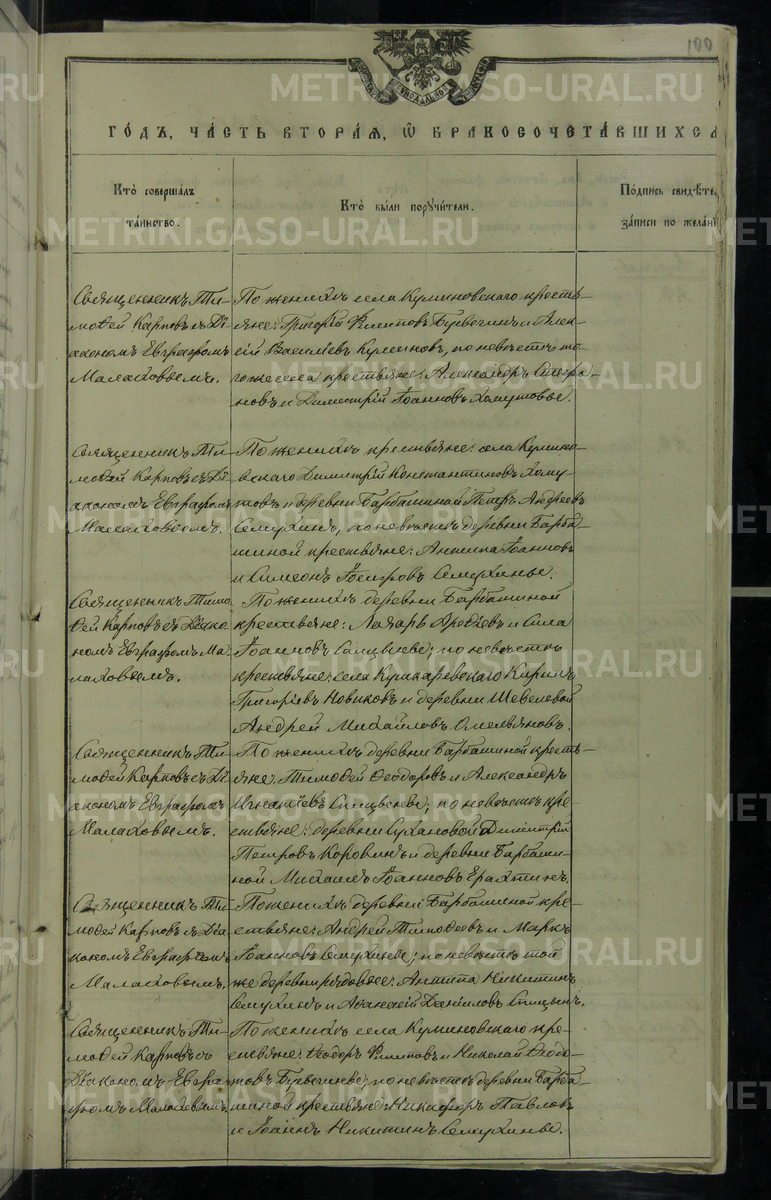 100
METRIKI.GASO-URAL.RU
ГОДЪ, ЧАСТЬ ВТОРАЯ, Ѡ БРАКОСОЧЕТАВШИХСЯ
Кто совершалъ
таинство.
Кто были поручители.
Подпись свидѣте
записи по желані
Священникъ Ти-
моѳей Карповъ съ Ді-
акономъ Евграфомъ
Малаховымъ.
По женихѣ села Куминовскаго кресть-
яне: Григорій Филиповъ и Алек-
сій Васильевъ Куминовъ, по невѣстѣ то-
гоже села крестьяне: Александръ
новъ и Димитрій Іоанновъ Хомутовы.
Священникъ Ти-
моѳей Карповъ съ Ді-
акономъ Евграфомъ
Малаховымъ.
По женихѣ крестьяне: села Кумино-
вскаго Димитрій Константиновъ Хому-
товъ и деревни Барбашиной Петръ Андреевъ
Семухинъ, по невѣстѣ деревни Барба-
шиной крестьяне: Антипа Іоанновъ
и Симеонъ Семухины.
Священникъ Тимо-
ѳей Карповъ съ Діако-
номъ Евграфомъ Ма-
лаховымъ.
По женихѣ деревни Барбашиной
крестьяне: Лазарь и Сила
Іоанновъ по невѣстѣ
крестьяне: села Кушкаревскаго
Григорьевъ Новиковъ и деревни Шевелевой
Андрей Михайловъ Омельяновъ.
Священникъ Ти-
моѳей Карповъ съ Ді-
акономъ Евграфомъ
Малаховымъ.
По женихѣ деревни Барбашиной кресть-
яне: Тимоѳей Ѳеодоровъ и Александръ
Игнатіевъ по невѣстѣ кре-
стьяне: деревни Сухановой Димитрій
Петровъ Коровинъ и деревни Барбаши-
ной Михаилъ Іоанновъ
Священникъ Ти-
моѳей Карповъ съ Діа-
кономъ Евграфомъ
Малаховымъ.
По женихѣ деревни Барбашиной кре-
стьяне: Андрей Тимоѳеевъ и Маркъ
Іоанновъ Семухины; по невѣстѣ той
же деревни Антипа Никитинъ
Семухинъ и Аѳанасій Даніиловъ Спицынъ.
Священникъ Ти-
моѳей Карповъ съ
Діакономъ Евгра-
фомъ Малаховымъ.
По женихѣ села Куминовскаго кре-
стьяне: Ѳеодоръ Филиповъ и Николай Ѳедо-
товъ по невѣстѣ деревни Барба-
шиной крестьяне: Никифоръ Павловъ
и Іоаннъ Никитинъ Семухины.